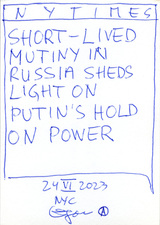 N Y TIMES
SHORT-LIVED
MUTINY IN
RUSSIA SHEDS
LIGHT ON
PUTIN'S HOLD
ON POWER
24 VI 2023
NYC
A